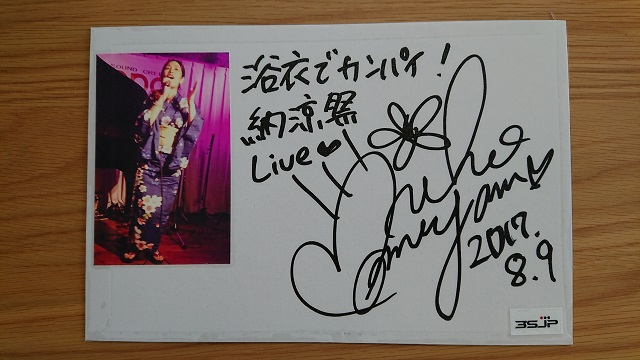 SOUND CRE
浴衣でカンパイ!
納涼祭
Live♥
2017.
8.9
3SJP